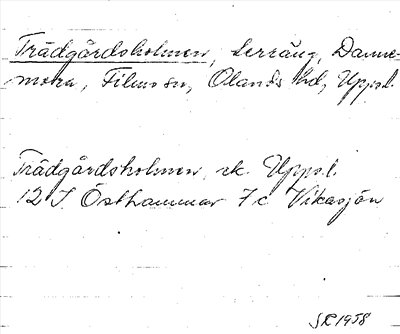 Trädgårdsholmen, Lerräng, Danne-
mora, Filmo sn, Olands hd, Uppl.
Trädgårdsholmen, ek. Uppsl.
12 I Östhammar 7 c Vikasjön
SR 1958